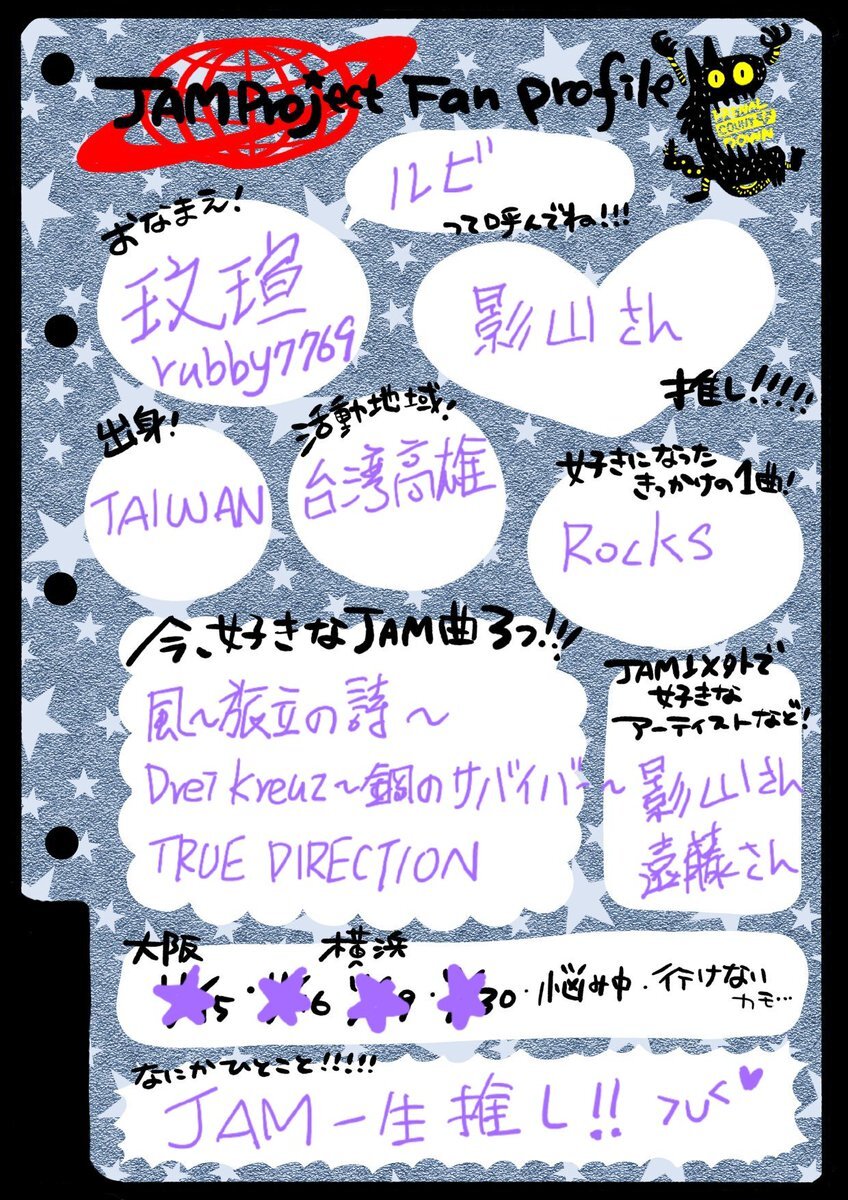 JAM Project Fan profile
ルビ
って呼んでね!!!
おなまえ!
玟瑄
rubby7769
影山さん
推し!!!!!
出身!
TAIWAN
活動地域!
台湾高雄
好きになった
きっかけの1曲!
Rocks
今、好きなJAM曲3つ!!!
風〜旅立の詩〜
Drei Kreuz〜鋼のサバイバー〜
TRUE DIRECTION
JAM以外で
好きな
アーティストなど!
影山さん
遠藤さん
大阪 横浜
5・6 9・30・悩み中・行けない
カモ…
なにかひとこと!!!!!
JAM一生推し!!